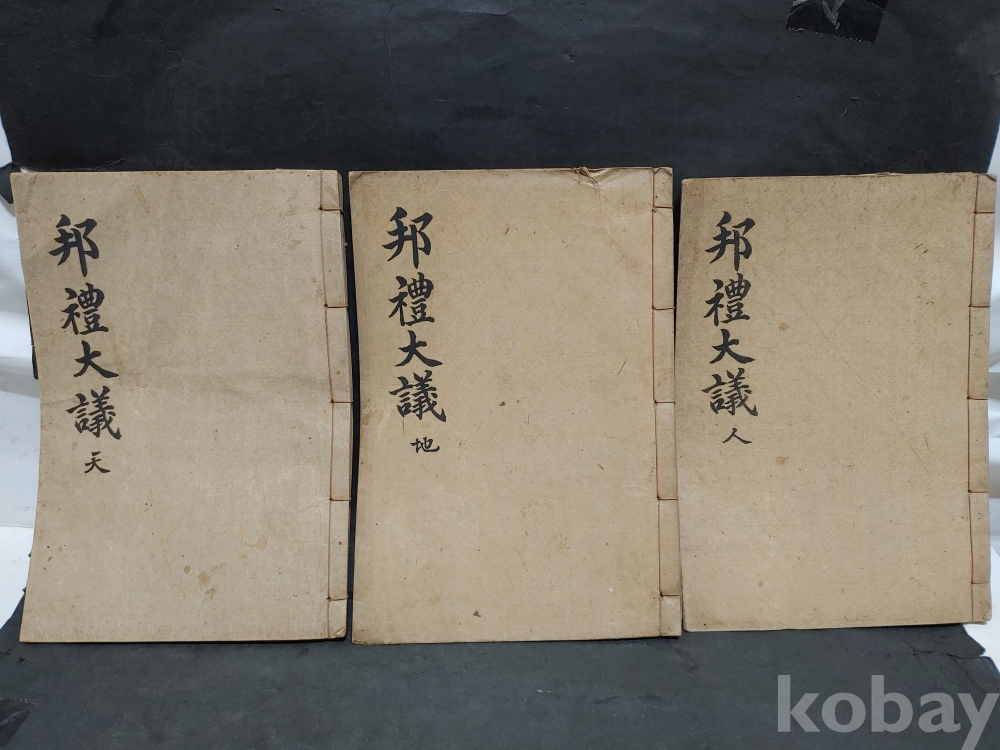 邦禮大議 天
邦禮大議 地
邦禮大議 人
kobay